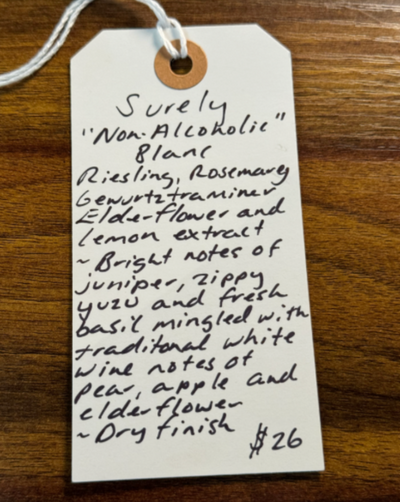 Surely
"Non-Alcoholic"
Blanc
Riesling, Rosemary
Gewurtztraminer
Elderflower and
lemon extract
~ Bright notes of
juniper, zippy
yuzu and fresh
basil mingled with
traditonal white
wine notes of
pear, apple and
elderflower
~ Dry finish
$26